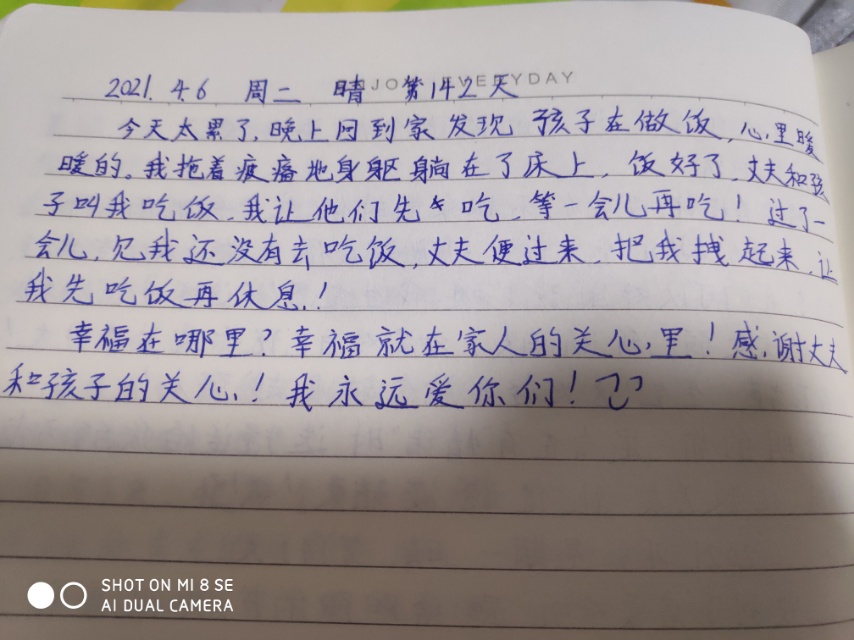 JOY EVERYDAY
2021.4.6 周二 晴 第142天
今天太累了,晚上回到家发现孩子在做饭,心里暖
暖的。我拖着疲惫地身躯躺在了床上,饭好了,丈夫和孩
子叫我吃饭,我让他们先吃,等一会儿再吃!过了一
会儿,见我还没有去吃饭,丈夫便过来,把我拽起来,让
我先吃饭再休息!
幸福在哪里?幸福就在家人的关心里!感谢丈夫
和孩子的关心!我永远爱你们!
SHOT ON MI 8 SE
AI DUAL CAMERA